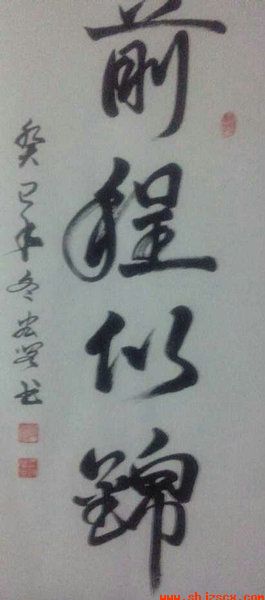 前程似锦
癸巳年冬
书
www.shjzscx.com